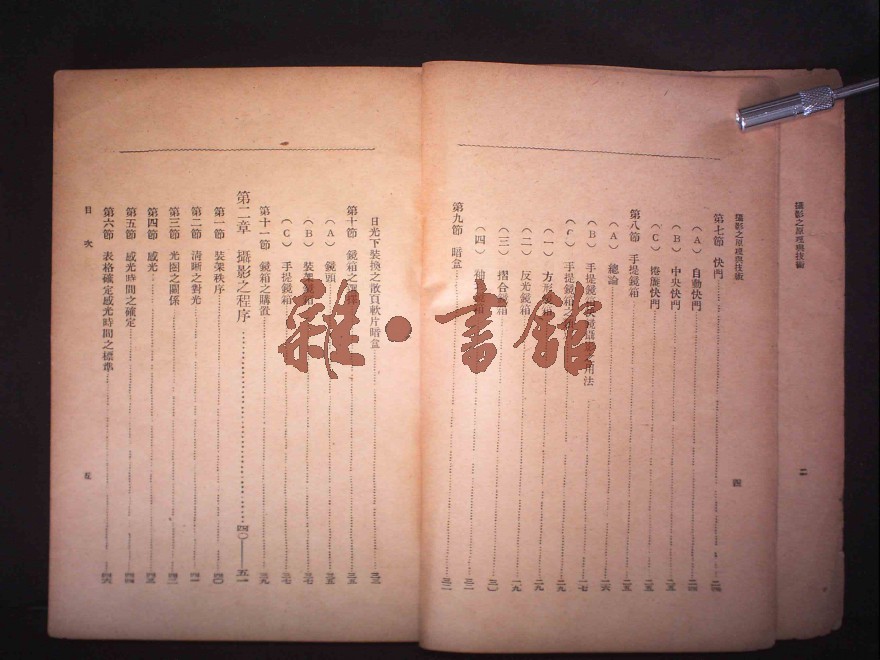 攝影之原理與技術
二
攝影之原理與技術
四
第七節 快門 二四
(A) 自動快門 二四
(B) 中央快門 二五
(C) 捲簾快門 二五
第八節 手提鏡箱 二五
(A) 總論 二六
(B) 手提鏡 用法 一七
(C) 手提鏡箱之 二九
(一) 方形 箱 二九
(二) 反光鏡箱 一九
(三) 摺合鏡箱 三〇
(四) 箱 三一
第九節 暗盒
日光下裝換之散頁軟片暗盒 三三
第十節 鏡箱之 三五
(A) 鏡頭 三五
(B) 裝架鏡箱 三七
(C) 手提鏡箱 三七
第十一節 鏡箱之購置 三九
第二章 攝影之程序 四〇——五一
第一節 裝架秩序 四〇
第二節 清晰之對光 四一
第三節 光圈之關係 四二
第四節 感光 四三
第五節 感光時間之確定 四四
第六節 表格確定感光時間之標準 四六
目次
五
雜·書館